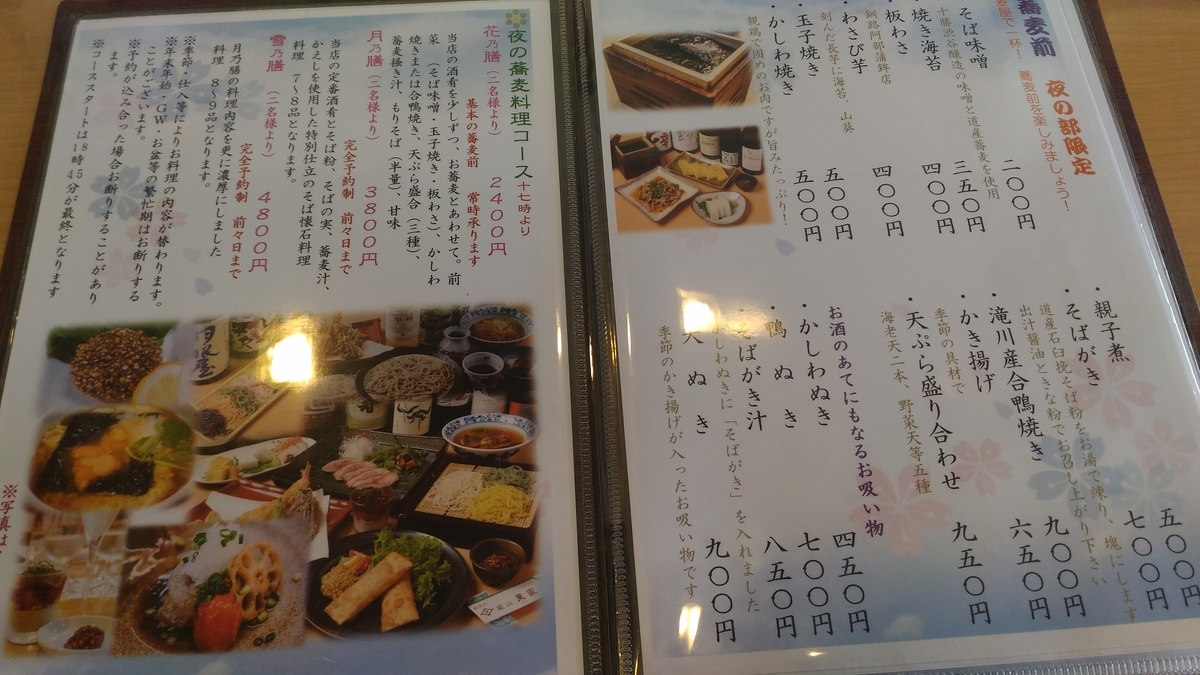 蕎麦前 夜の部限定
蕎麦屋で一杯! 蕎麦前を楽しみましょう!
そば味噌 二〇〇円
十勝渋谷醸造の味噌と道産蕎麦を使用
・焼き海苔 三五〇円
・板わさ 四〇〇円
釧路阿部蒲鉾店
・わさび芋 四〇〇円
刻んだ長芋に海苔、山葵
・玉子焼き 五〇〇円
・かしわ焼き 五〇〇円
親鶏で固めのお肉ですが旨みたっぷり!
・親子煮 五〇〇円
・そばがき 七〇〇円
道産石臼挽そば粉をお湯で練り、塊にします
出汁醤油ときな粉でお召し上がり下さい
・滝川産合鴨焼き 九〇〇円
・かき揚げ 六五〇円
季節の具材で
・天ぷら盛り合わせ 九五〇円
海老天二本、野菜天等五種
お酒のあてにもなるお吸い物
・かしわぬき 四五〇円
・鴨ぬき 七〇〇円
・そばがき汁 八五〇円
かしわぬきに「そばがき」を入れました
天ぬき 九〇〇円
季節のかき揚げが入ったお吸い物です
夜の蕎麦料理コース 十七時より
花乃膳(二名様より) 2400円
基本の蕎麦前 常時承ります
当店の酒肴を少しずつ、お蕎麦とあわせて。前
菜(そば味噌・玉子焼き・板わさ)、かしわ
焼きまたは合鴨焼き、天ぷら盛合(三種)、
蕎麦掻き汁、もりそば(半量)、甘味
月乃膳(二名様より) 3800円
完全予約制 前々日まで
当店の定番酒肴とそば粉、そばの実、蕎麦汁、
かえしを使用した特別仕立のそば懐石料理
料理 7〜8品となります。
雪乃膳(二名様より) 4800円
完全予約制 前々日まで
月乃膳の料理内容を更に濃厚にしました
料理 8〜9品となります。
※季節・仕入等によりお料理の内容が替わります。
※年末年始・GW・お盆等の繁忙期はお断りする
ことがございます。
※予約が込み合った場合お断りすることがあり
ます。
※コーススタートは18時45分が最終となります
※写真は